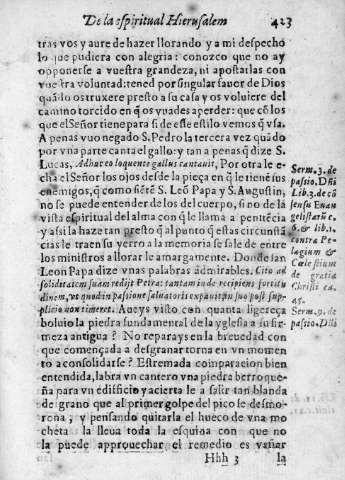 De la espiritual Hierusalem 423
tras vos y aure de hazer llorando y a mi despecho
lo que pudiera con alegria: conozco que no ay
opponerse a vuestra grandeza, ni apostarlas con
vuestra voluntad: tened por singular fauor de Dios
quãdo os truxere presto a su casa y os voluiere del
camino torcido en q̃ os vuades a perder: que cõ los
que el Señor tiene para si de este estilo vemos q̃ vsa.
A penas vuo negado S. Pedro la tercera vez quãdo
por vna parte canta el gallo: y tan a penas q̃ dize S.
Lucas, Adhuc eo loquente gallus cantauit, Por otra le e-
cha el Señor los ojos desde la pieça en q̃ le tieneu sus
enemigos, q̃ como siẽtẽ S. Leõ Papa y S. Augustin,
no se puede entender de los del cuerpo, si no de la
vista espiritual del alma con q̃ le llama a penitẽcia
y assi la haze tan presto q̃ al punto q̃ estas circunstã
cias le traen su yerro a la memoria se sale de entre
los ministros a llorar le amargamente. Donde san
Leon Papa dize vnas palabras admirables. Cito ad
soliditatem suam redijt Petra: tantam inde recipiens fortitu
dinem, vt quod in passione saluatoris expauit in suo post sup-
plicio non timeret. Aueys visto con quanta ligereça
boluio la piedra fundamental de la yglesia a su fir-
meza antigua? No reparays en la breuedad con
que començada a desgranar torna en vn momen
to a consolidarse? Estremada comparacion bien
entendida, labra vn cantero vna piedra berroque-
ña para vn edifficio y acierte le a salir tan blanda
de grano que al primer golpe del pico se desmo-
rona; y pensando quitarla el hueco de vna mo-
cheta la lleua toda la esquina con que no
la puede approuechar el remedio es vañar
Hhh 3 la
Serm. 3. de
passio. Dñi
Lib. 3. de cõ
sensu Euan
gelistarũ c.
6. & lib. 1.
contra Pe-
lagium &
Cœlestium
de gratia
Christi ca.
45.
Serm. 9. de
passio. Dñi